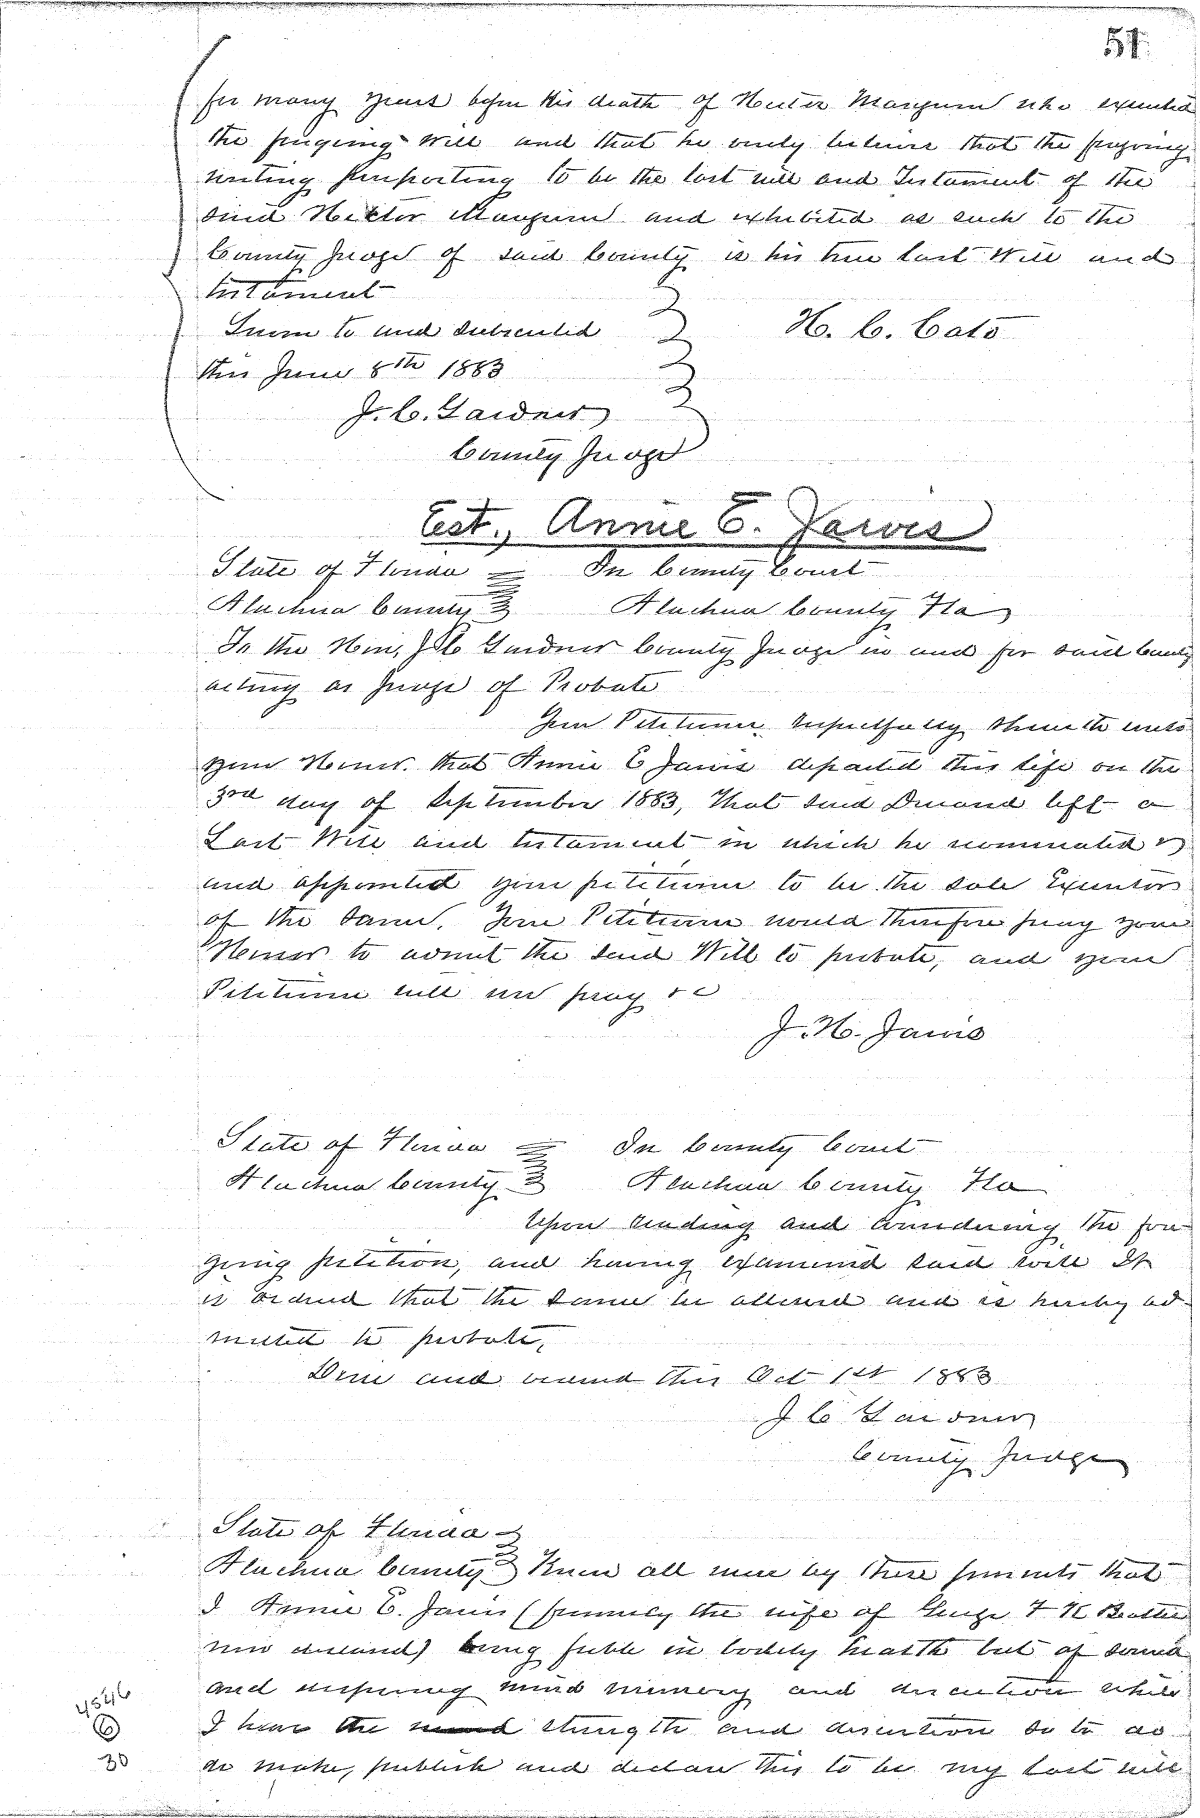 51
for many years before the death of Hector Mangum who executed
the foregoing Will and that he verily believes that the foregoing
writing purporting to be the last will and Testament of the
said Hector Mangum and exhibited as such to the
County Judge of said County is his true last Will and
testament
Sworn to and subscribed
H. C. Cato
this June 8th 1883
J. C. Gardner
County Judge
Est., Annie E. Jarvis
State of Florida In County Court
Alachua County Alachua County Fla
To the Hon, J C Gardner County Judge in and for said County
acting as Judge of Probate
Your Petitioner respectfully sheweth unto
your Honor that Annie E Jarvis departed this life on the
3rd day of September 1883, that said Deceased left a
Last Will and testament in which he nominated
and appointed your petitioner to be the sole Executor
of the same. Your Petitioner would therefore pray your
Honor to admit the said Will to probate, and your
Petitioner will ever pray &c
J. H. Jarvis
State of Florida In County Court
Alachua County Alachua County Fla
Upon reading and considering the fore
going petition, and having examined said will It
is ordered that the same be allowed and is hereby ad
mitted to probate,
Done and ordered this Oct 1st 1883
J C Gardner
County Judge
State of Florida
Alachua County Know all men by these presents that
I Annie E. Jarvis (formerly the wife of George F K
now deceased) being feeble in bodily health but of sound
and disposing mind memory and discretion while
I have the mind strength and discretion so to do
do make, publish and declare this to be my last will
4546
6
30